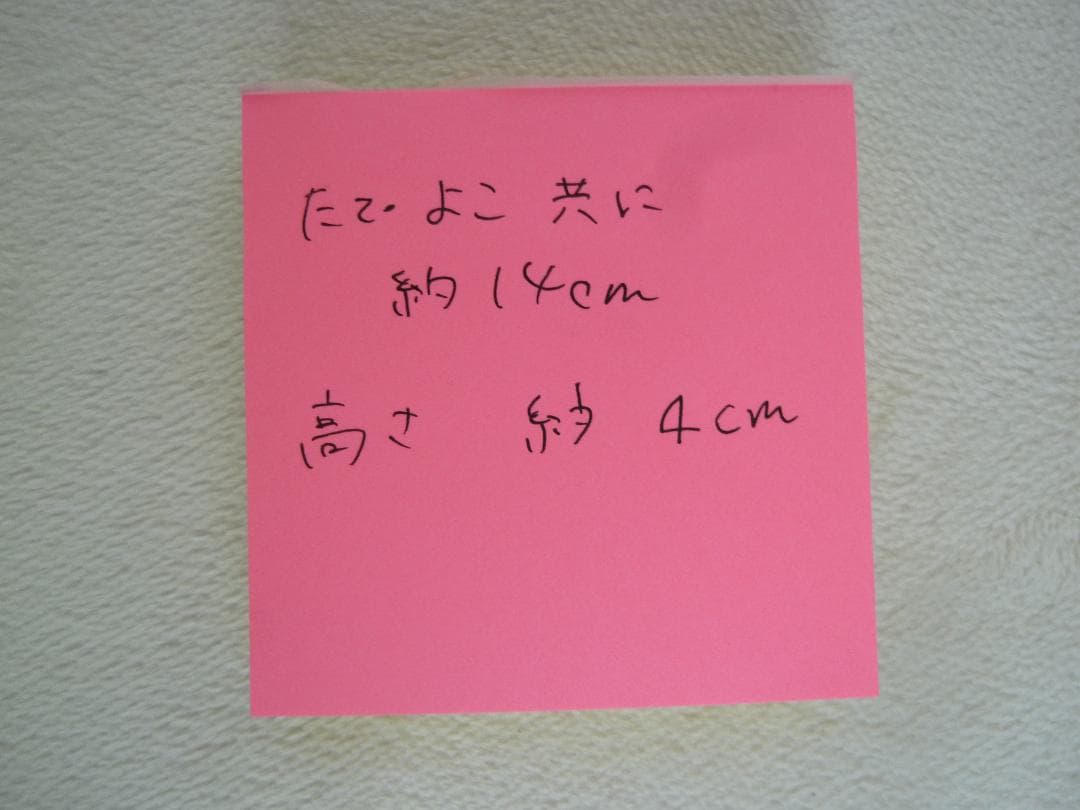 たて・よこ 共に
約14cm
高さ 約 4cm